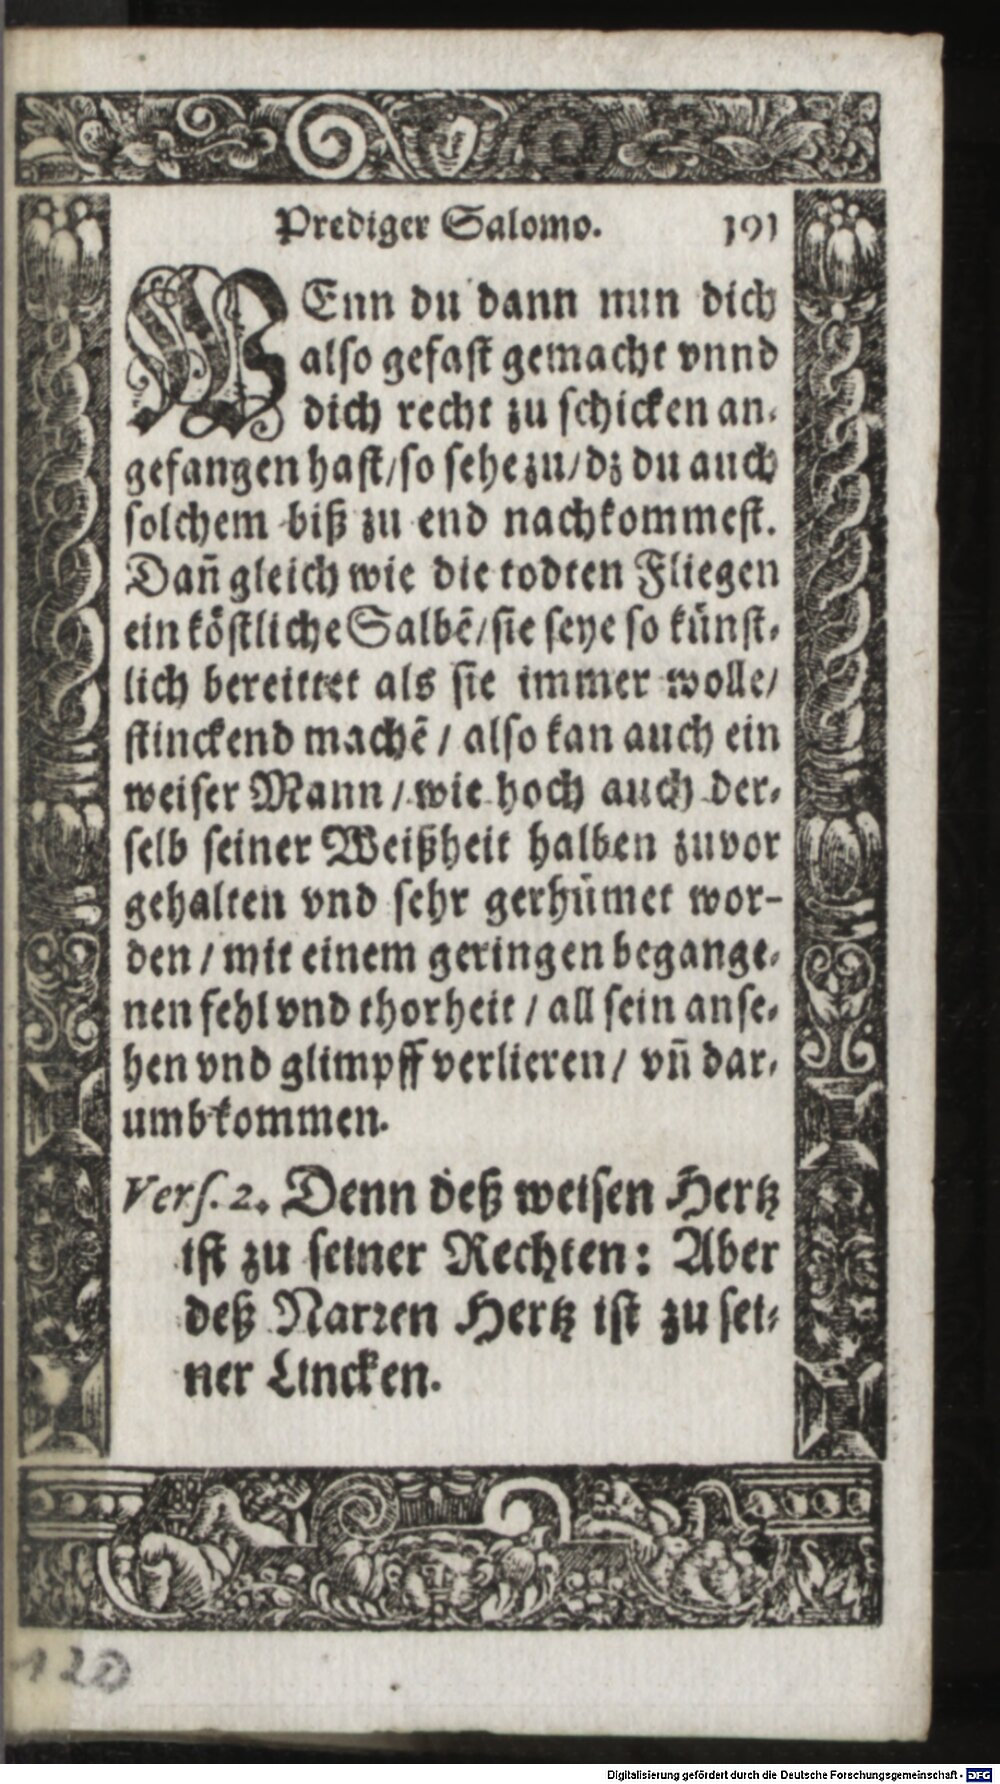 Prediger Salomo. 191
WEnn du dann nun dich
also gefast gemacht vnnd
dich recht zu schicken an-
gefangen hast/so sehe zu/dz du auch
solchem biß zu end nachkommest.
Dañ gleich wie die todten Fliegen
ein köstliche Salbẽ/sie seye so künst-
lich bereittet als sie immer wolle/
stinckend machẽ/also kan auch ein
weiser Mann/wie hoch auch der-
selb seiner Weißheit halben zuvor
gehalten vnd sehr gerhümet wor-
den/mit einem geringen begange-
nen fehl vnd thorheit/all sein anse-
hen vnd glimpff verlieren/vñ dar-
umb kommen.
Vers. 2. Denn deß weisen Hertz
ist zu seiner Rechten: Aber
deß Narren Hertz ist zu sei-
ner Lincken.
120
Digitalisierung gefördert durch die Deutsche Forschungsgemeinschaft - DFG